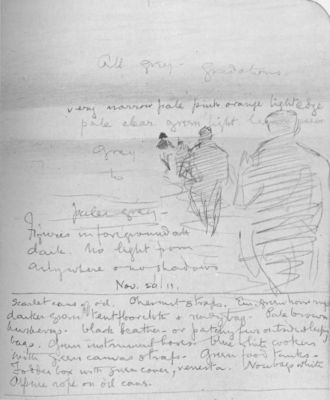 All grey - gradations.
very narrow pale pink orange light edge
pale clear green light
Grey
to
paler grey -
Figures in foreground all
dark. No light from
anywhere & no shadows
Nov. 20/11.
Scarlet cans of oil. Chestnut straps. green
darker green tent floorcloth & bag. Pale brown
black leather or
bags. Green instrument boxes. blue white cookers
with green canvas straps. Green food tanks.
Fodder box with green cover, venesta. Nosebags white
Alpine rope on oil cans.